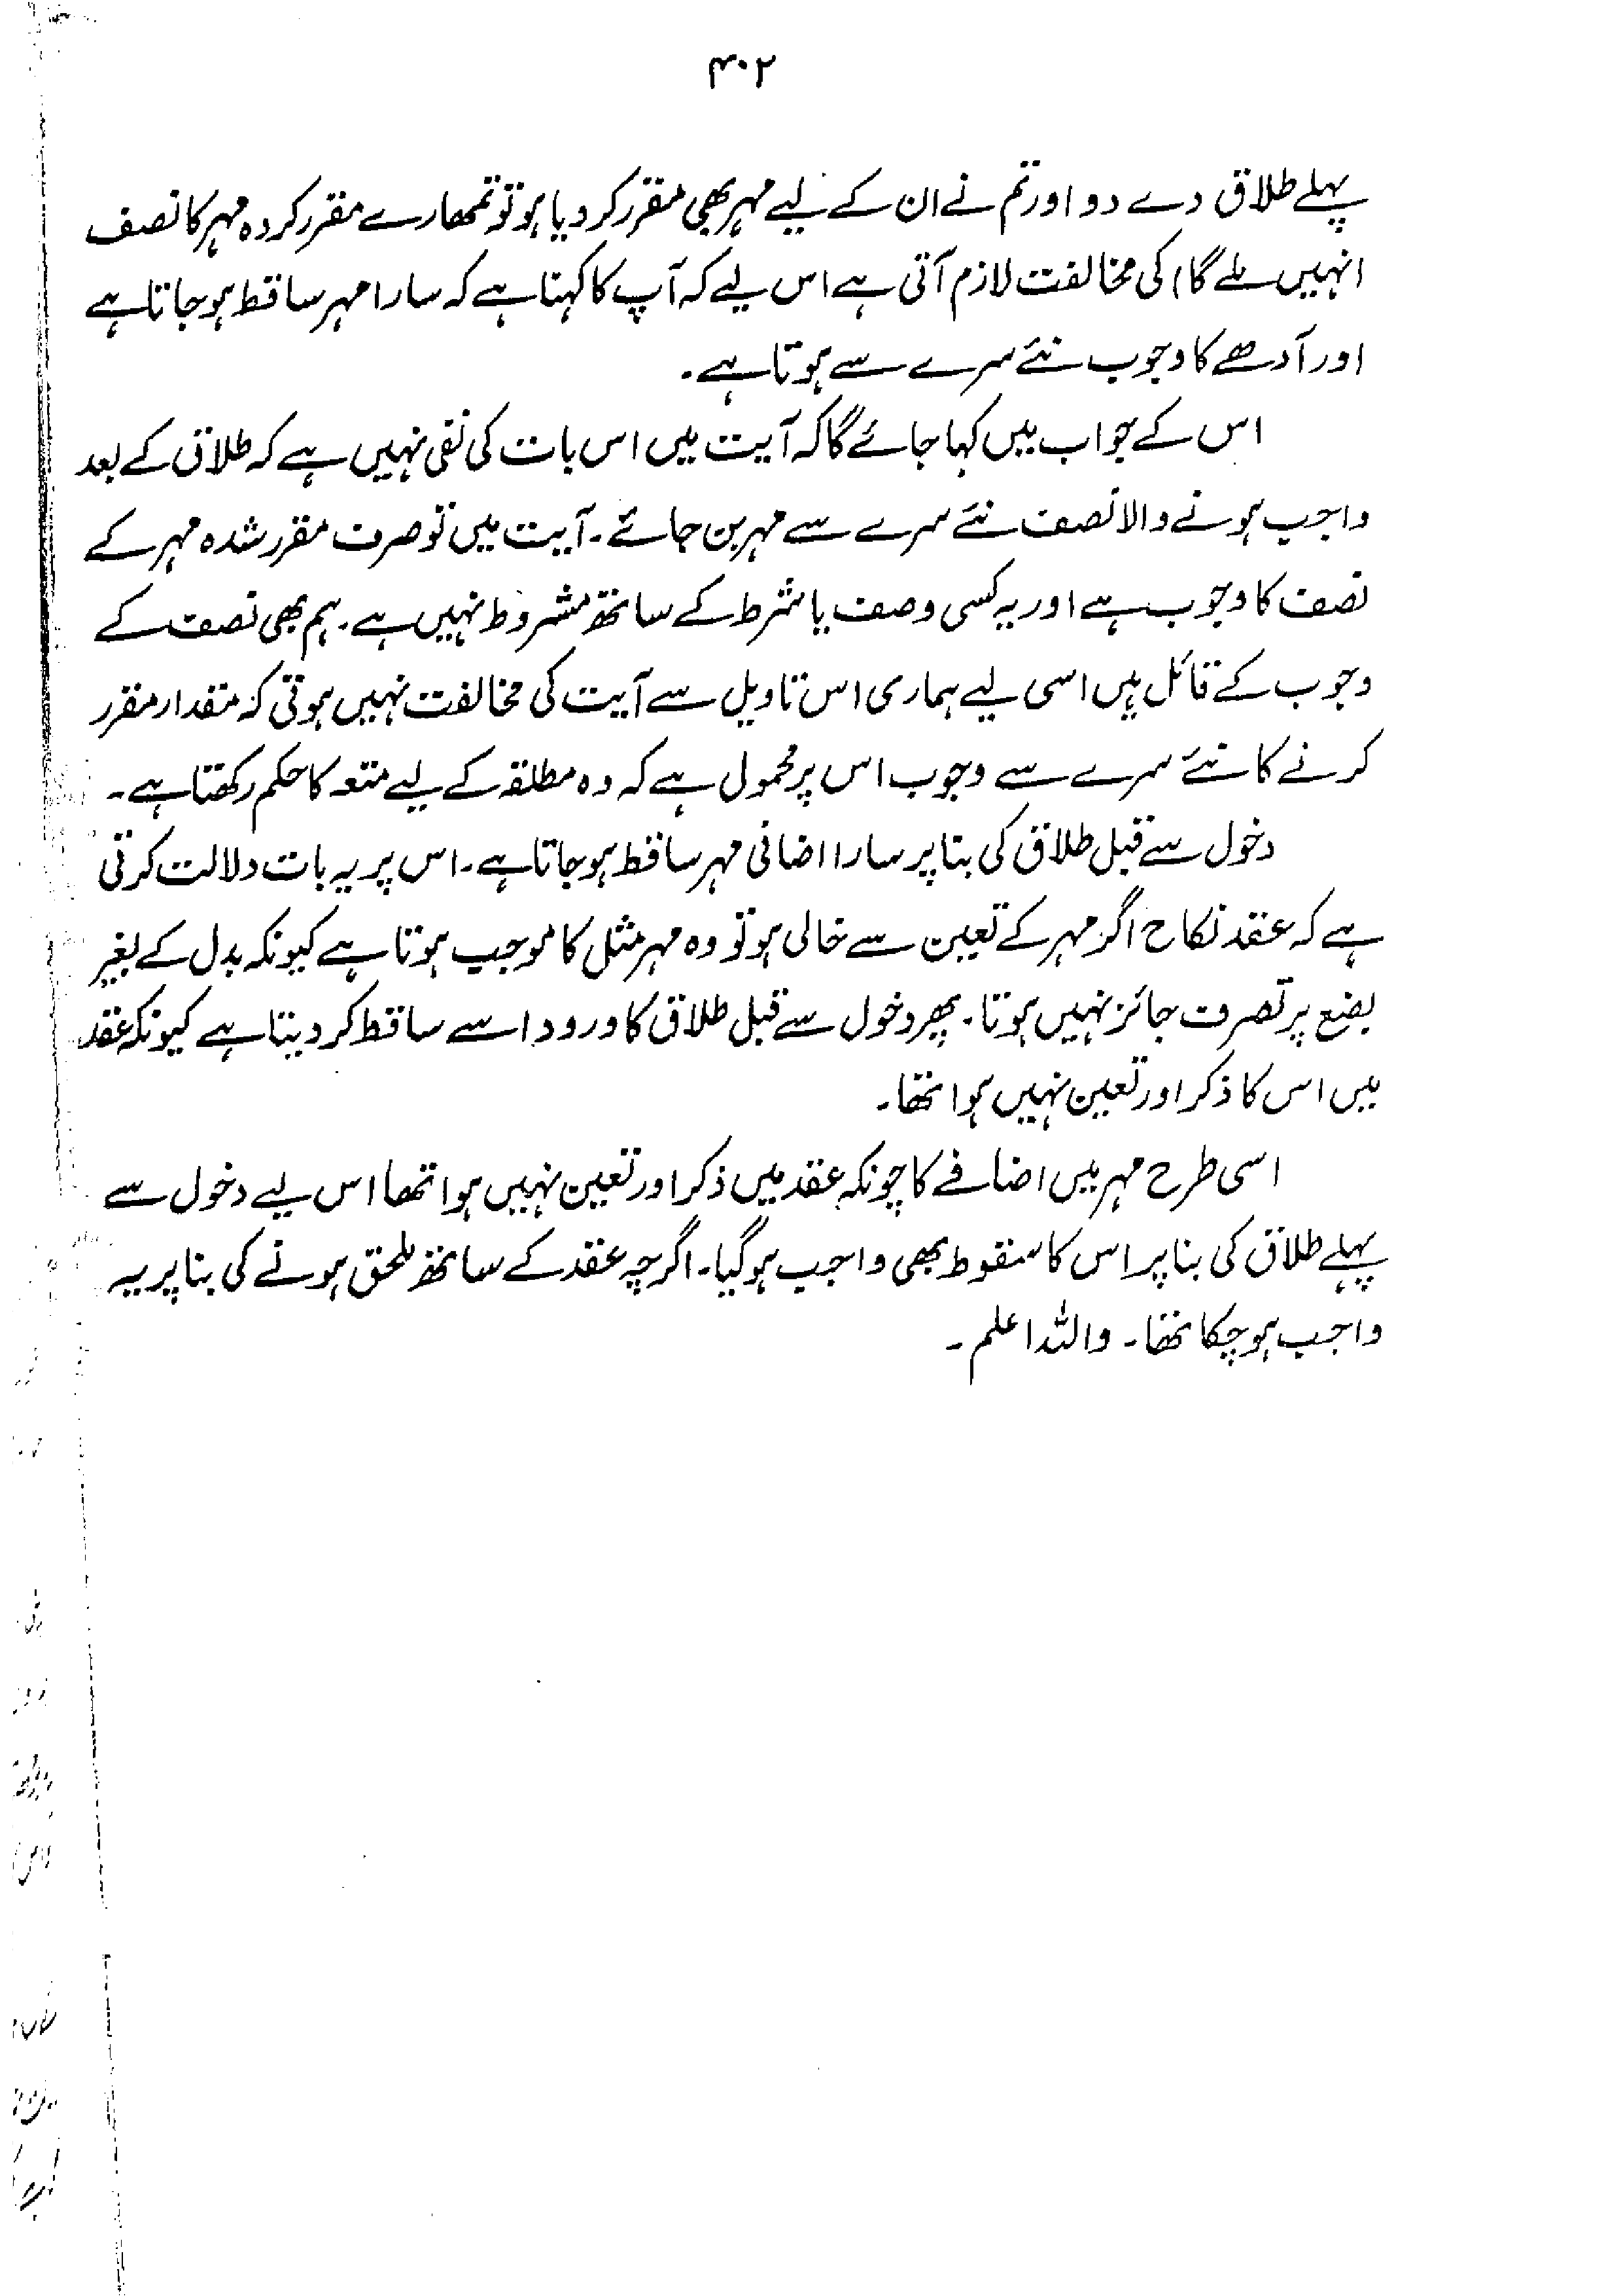 ۴۰۲
پہلے طلاق دے دو اور تم نے ان کے لیے مہر بھی مقرر کر دیا ہو تو تمھارے مقرر کردہ مہر کا نصف
انہیں ملے گا) کی مخالفت لازم آتی ہے اس لیے کہ آپ کا کہنا ہے کہ سارا مہر ساقط ہو جاتا ہے
اور آدھے کا وجوب نئے سرے سے ہوتا ہے۔
اس کے جواب میں کہا جائے گا کہ آیت میں اس بات کی نفی نہیں ہے کہ طلاق کے بعد
واجب ہونے والا نصف نئے سرے سے مہر بن جائے۔ آیت میں تو صرف مقرر شدہ مہر کے
نصف کا وجوب ہے اور یہ کسی وصف یا شرط کے ساتھ مشروط نہیں ہے۔ ہم بھی نصف کے
وجوب کے قائل ہیں اسی لیے ہماری اس تاویل سے آیت کی مخالفت نہیں ہوتی کہ مقدار مقرر
کرنے کا نئے سرے سے وجوب اس پر محمول ہے کہ وہ مطلقہ کے لیے متعہ کا حکم رکھتا ہے۔
دخول سے قبل طلاق کی بنا پر سارا اضافی مہر ساقط ہو جاتا ہے۔ اس پر یہ بات دلالت کرتی
ہے کہ عقد نکاح اگر مہر کے تعین سے خالی ہو تو وہ مہر مثل کا موجب ہوتا ہے کیونکہ بدل کے بغیر
بضع پر تصرف جائز نہیں ہوتا۔ پھر دخول سے قبل طلاق کا ورود اسے ساقط کر دیتا ہے کیونکہ عقد
میں اس کا ذکر اور تعین نہیں ہوا تھا۔
اسی طرح مہر میں اضافے کا چونکہ عقد میں ذکر اور تعین نہیں ہوا تھا اس لیے دخول سے
پہلے طلاق کی بنا پر اس کا سقوط بھی واجب ہو گیا۔ اگرچہ عقد کے ساتھ ملحق ہونے کی بنا پر یہ
واجب ہو چکا تھا۔ واللہ اعلم۔